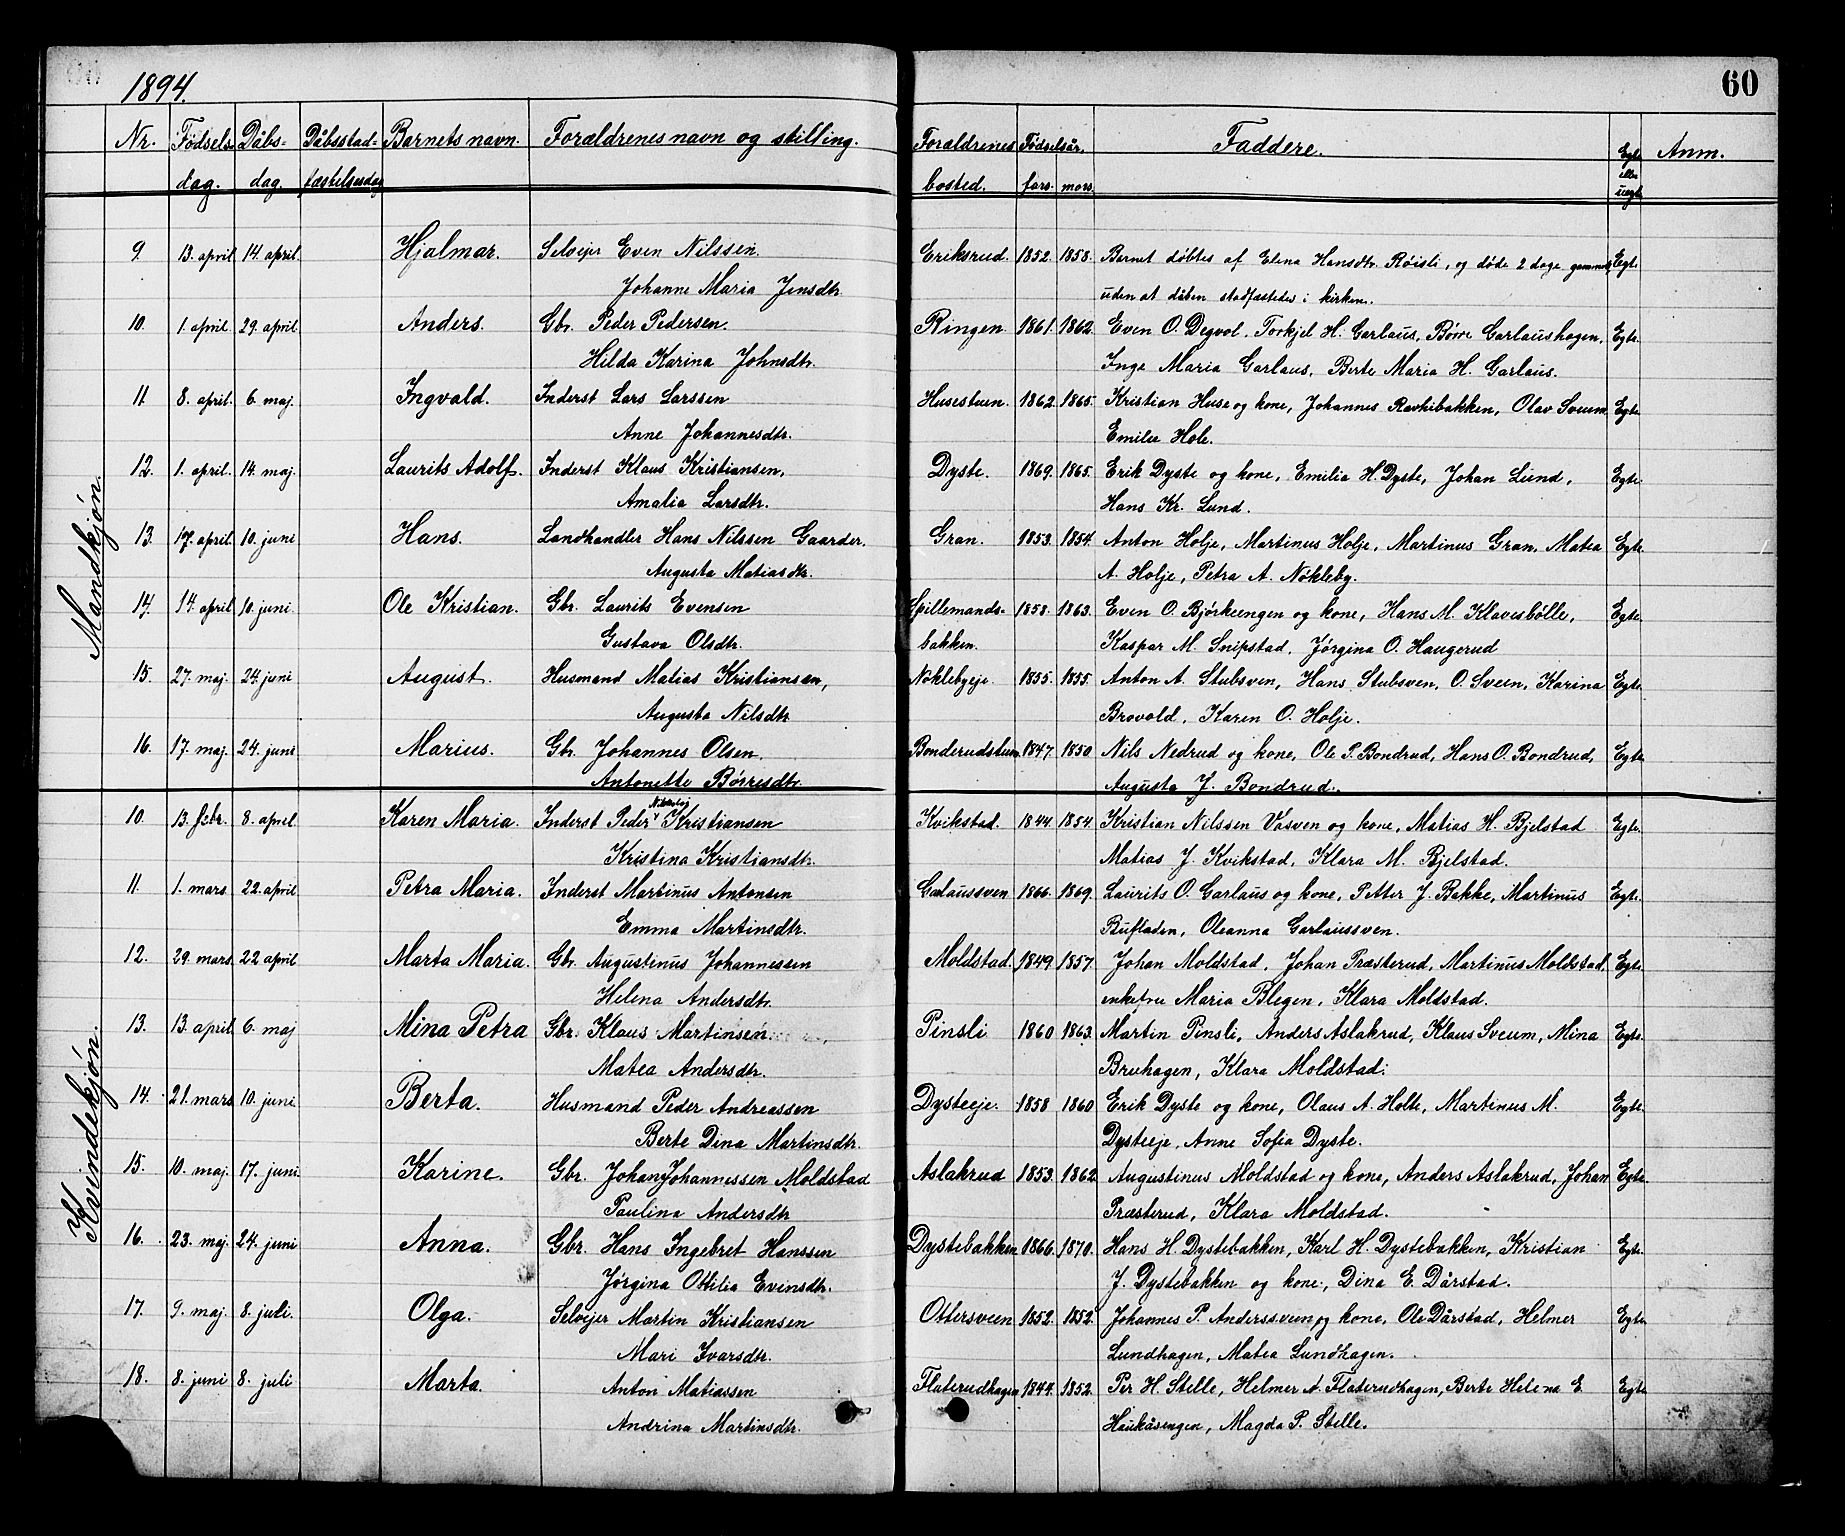 1894.
60
Nr. Fødsels- Dåbs- Dåbsstad- Barnets navn. Forældrenes navn og stilling. Forældrenes Fødselsår. Faddere. Egte Anm.
dag. dag. fæstelsesdag bosted. fars. mors. eller uegte
Mandkjøn.
9. 13. april 14. april. Hjalmar. Selveier Even Nilssen. Eriksrud. 1852. 1858. Barnet døbtes af Elena Hansdtr. Røisli, og døde 2 dage gammelt Egte.
Johanne Maria Jensdtr. uden at dåben stadfæstedes i kirken.
10. 1. april. 29. april. Anders. Gbr. Peder Pedersen. Ringen. 1861. 1862. Even O. Degvol, Torkjel H. Garlaus, Børre Garlaushagen, Egte.
Hilda Karina Johnsdtr. Inge Maria Garlaus, Berte Maria H. Garlaus.
11. 8. april. 6. maj. Ingvald. Inderst Lars Larssen Husestuen. 1862. 1865. Kristian Huse og kone, Johannes Ravhibakken, Olav Sveum Egte.
Anne Johannesdtr. Emilie Hole.
12. 1. april. 14. maj. Laurits Adolf. Inderst Klaus Kristiansen, Dyste. 1869. 1865. Erik Dyste og kone, Emilia H. Dyste, Johan Lund, Egte.
Amalia Larsdtr. Hans Kr. Lund.
13. 17. april. 10. juni Hans. Landhandler Hans Nilssen Gaarder. Gran. 1853. 1854. Anton Holje, Martinus Holje, Martinus Gran, Matea Egte.
Augusta Matiasdtr. A. Holje, Petra A. Nøkleby.
14. 14. april 10. juni. Ole Kristian. Gbr. Laurits Evensen Spillemands- 1858. 1863. Even O. Bjørkeengen og kone, Hans M. Klavesbølle, Egte.
Gustava Olsdtr. bakken. Kaspar M. Snipstad, Jørgina O. Haugerud
15. 27. maj. 24. juni August. Husmand Matias Kristiansen, Nøklebyeje. 1855. 1855. Anton A. Stubsven, Hans Stubsven, O. Sveen, Karina Egte.
Augusta Nilsdtr. Brovold, Karen O. Holje.
16. 17. maj. 24. juni Marius. Gbr. Johannes Olsen. Bonderudstuen 1847. 1850 Nils Nedrud og kone, Ole P. Bondrud, Hans O. Bondrud, Egte.
Antonette Børresdtr. Augusta J. Bondrud.
Kvindekjøn.
10. 13. febr. 8. april. Karen Maria. Inderst Peder Kristiansen Kvikstad. 1844. 1854. Kristian Nilssen Vasven og kone, Matias H. Bjelstad Egte.
Kristina Kristiansdtr. Matias J. Kvikstad, Klara M. Bjelstad.
11. 1. mars. 22. april Petra Maria. Inderst Martinus Antonsen Garlaussven. 1866. 1869. Laurits O. Garlaus og kone, Petter J. Bakke, Martinus Egte.
Emma Martinsdtr. Bufladen, Oleanna Garlaussven.
12. 29. mars. 22 april Marta Maria. Gbr. Augustinus Johannessen Moldstad. 1849 1857. Johan Moldstad, Johan Præsterud, Martinus Moldstad, Egte.
Helena Andersdtr. enkefru Maria Blegen, Klara Moldstad.
13. 13. april. 6. maj Mina Petra Gbr. Klaus Martinsen. Pinsli 1860 1863. Martin Pinsli, Anders Aslakrud, Klaus Sveum, Mina Egte.
Matea Andersdtr. Bruhagen, Klara Moldstad.
14. 21. mars 10. juni. Berta. Husmand Peder Andreassen Dysteeje. 1858 1860 Erik Dyste og kone, Olaus A. Holte, Martinus M. Egte.
Berte Dina Martinsdtr. Dysteeje, Anne Sofia Dyste.
15. 10. maj. 17. juni. Karine. Gbr. Johan Johannessen Moldstad Aslakrud 1853. 1862 Augustinus Moldstad og kone, Anders Aslakrud, Johan Egte.
Paulina Andersdtr Præsterud, Klara Moldstad.
16. 23. maj. 24. juni Anna. Gbr. Hans Ingebret Hanssen Dystebakken 1866. 1870. Hans H. Dystebakken, Karl H. Dystebakken, Kristian Egte.
Jørgina Ottilia Evinsdtr. J. Dystebakken og kone, Dina E. Dårstad.
17. 9. maj. 8. juli. Olga. Selveier Martin Kristiansen Ottersveen 1852. 1852. Johannes P. Anderssveen og kone, Ole Dårstad, Helmer Egte.
Mari Ivarsdtr. Lundhagen, Matea Lundhagen.
18. 8. juni 8. juli Marta. Anton Matiassen Flaterudhagen 1844. 1852. Per H. Stelle, Helmer A. Flaterudhagen, Berte Helena E. Egte
Andrina Martinsdtr. Haukåsengen, Magda P. Stelle.